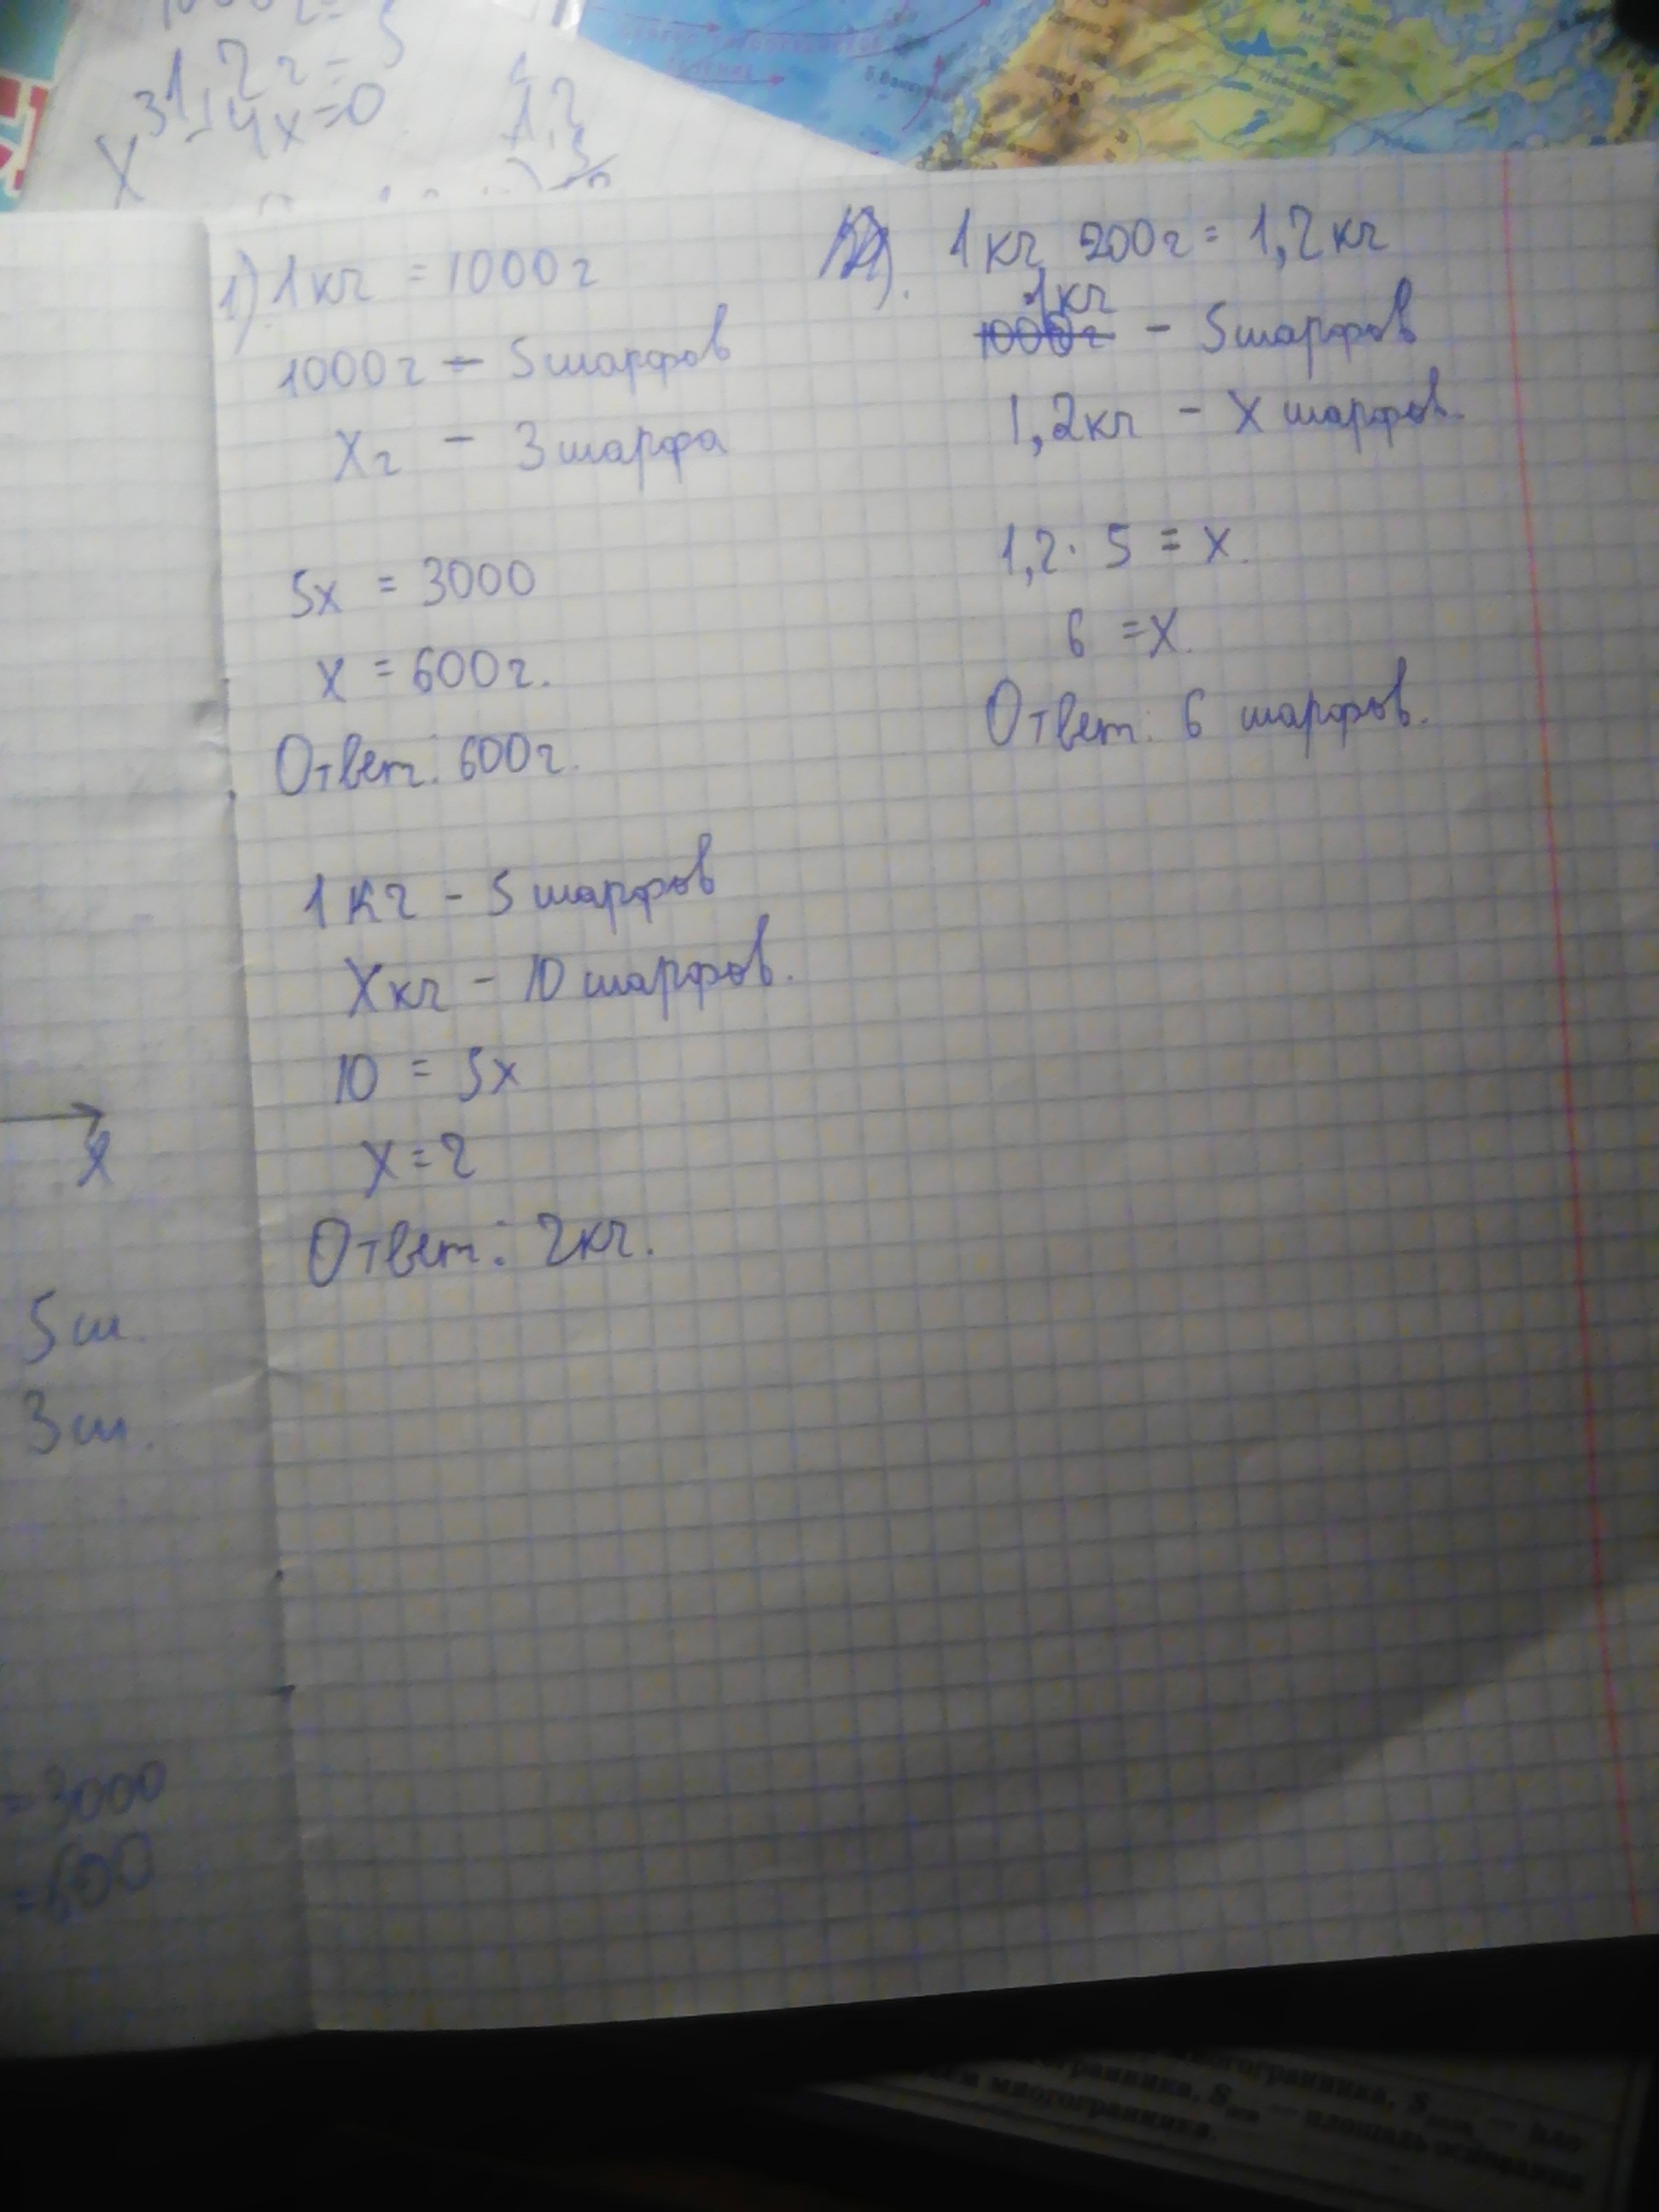 X³ - 4x = 0
1) 1кг = 1000г
1000г - 5 шарфов
Xг - 3 шарфа
5x = 3000
x = 600г.
Ответ: 600г.
1кг - 5 шарфов
Xкг - 10 шарфов.
10 = 5x
x = 2
Ответ: 2кг.
1кг 200г = 1,2кг
1кг
1000г - 5 шарфов
1,2кг - X шарфов.
1,2 · 5 = x.
6 = x.
Ответ: 6 шарфов.
X
5ш
3ш.
= 3000
= 600
многогранника, S
многогранника.
— площадь основания